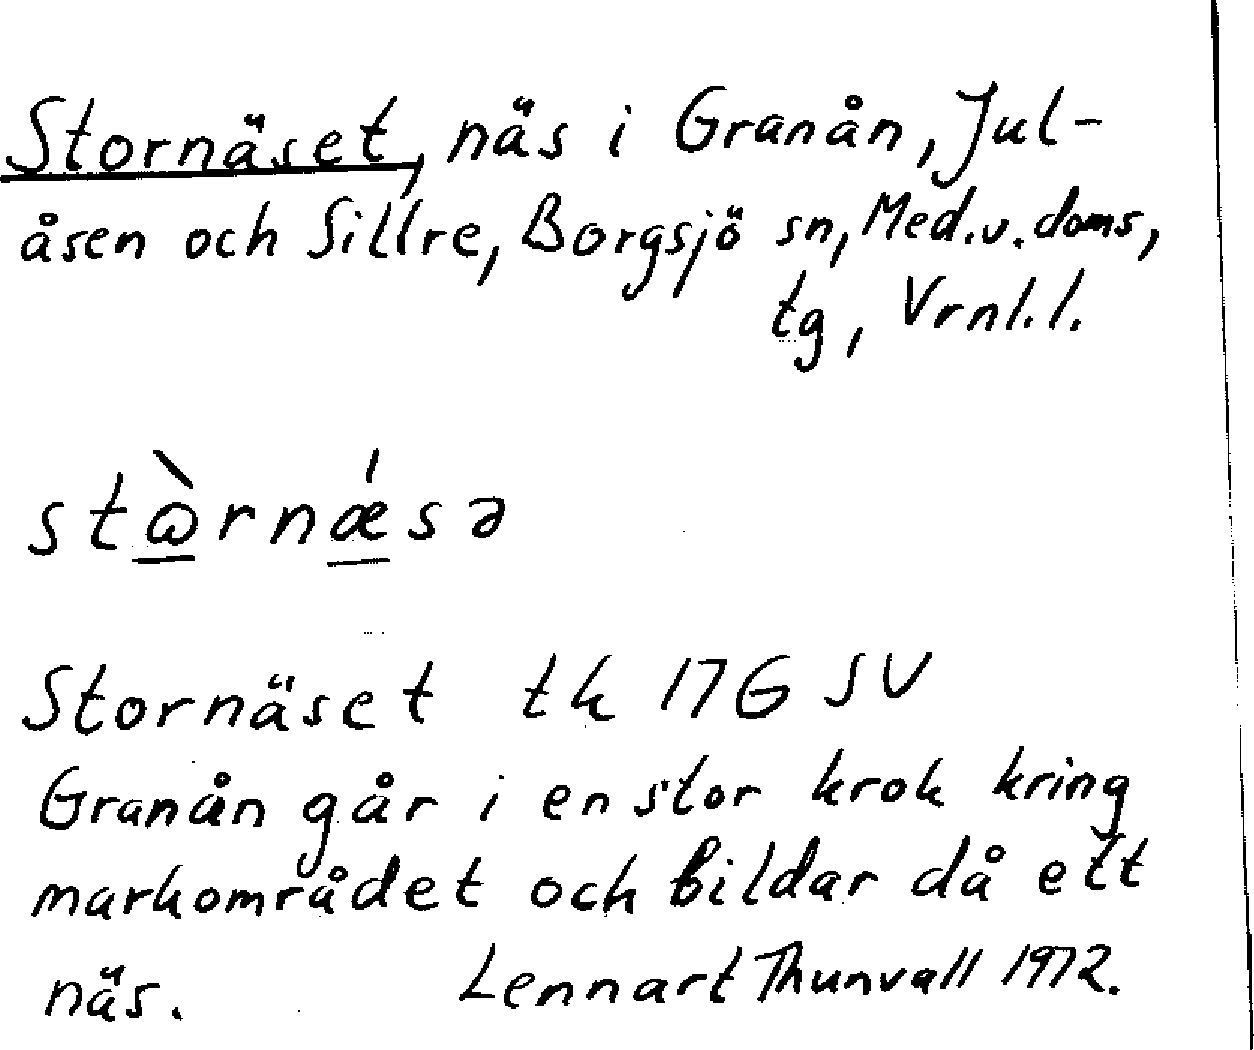 Stornäset, näs i Granån, Jul-
åsen och Sillre, Borgsjö sn, Med.v.doms,
tg, Vrnl.l.
stὼ̱rnǽ̱sə
Stornäset tk 17G SV
Granån går i en stor krok kring
markområdet och bildar då ett
näs. Lennart Thunvall 1972.